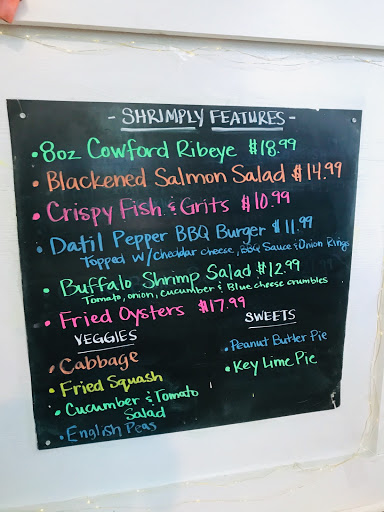 - SHRIMPLY FEATURES -
• 8oz Cowford Ribeye $18.99
• Blackened Salmon Salad $14.99
• Crispy Fish & Grits $10.99
• Datil Pepper BBQ Burger $11.99
Topped w/cheddar cheese, BBQ Sauce & Onion Rings
• Buffalo Shrimp Salad $12.99
Tomato, onion, cucumber & Blue cheese crumbles
• Fried Oysters $17.99
VEGGIES
• Cabbage
• Fried Squash
• Cucumber & Tomato
Salad
• English Peas
SWEETS
• Peanut Butter Pie
• Key Lime Pie